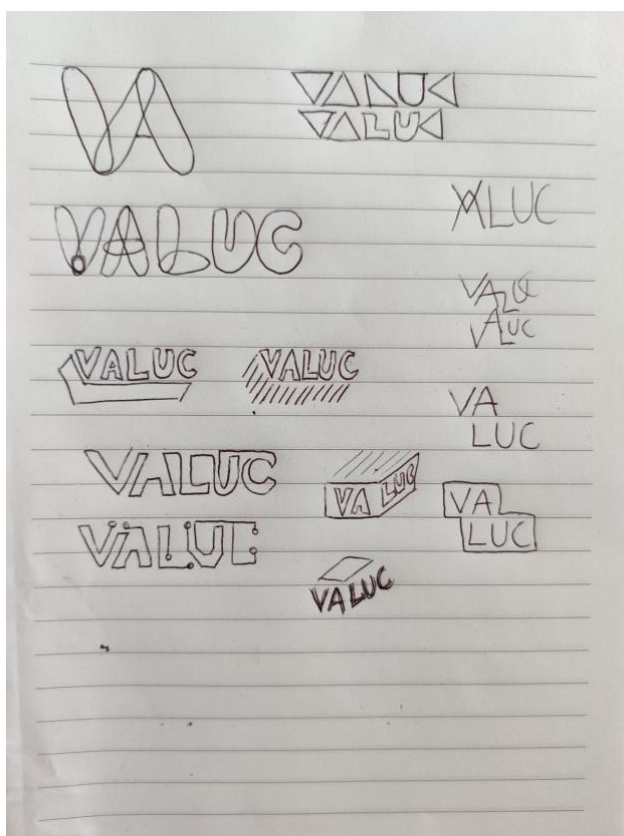 VA
VALUC
VALUC
VALUC
VALUC
VALUC
VALUC
VALUC
VALUC
VA
LUC
VALUC
VA LUC
VA
LUC
VALUC
VALUC